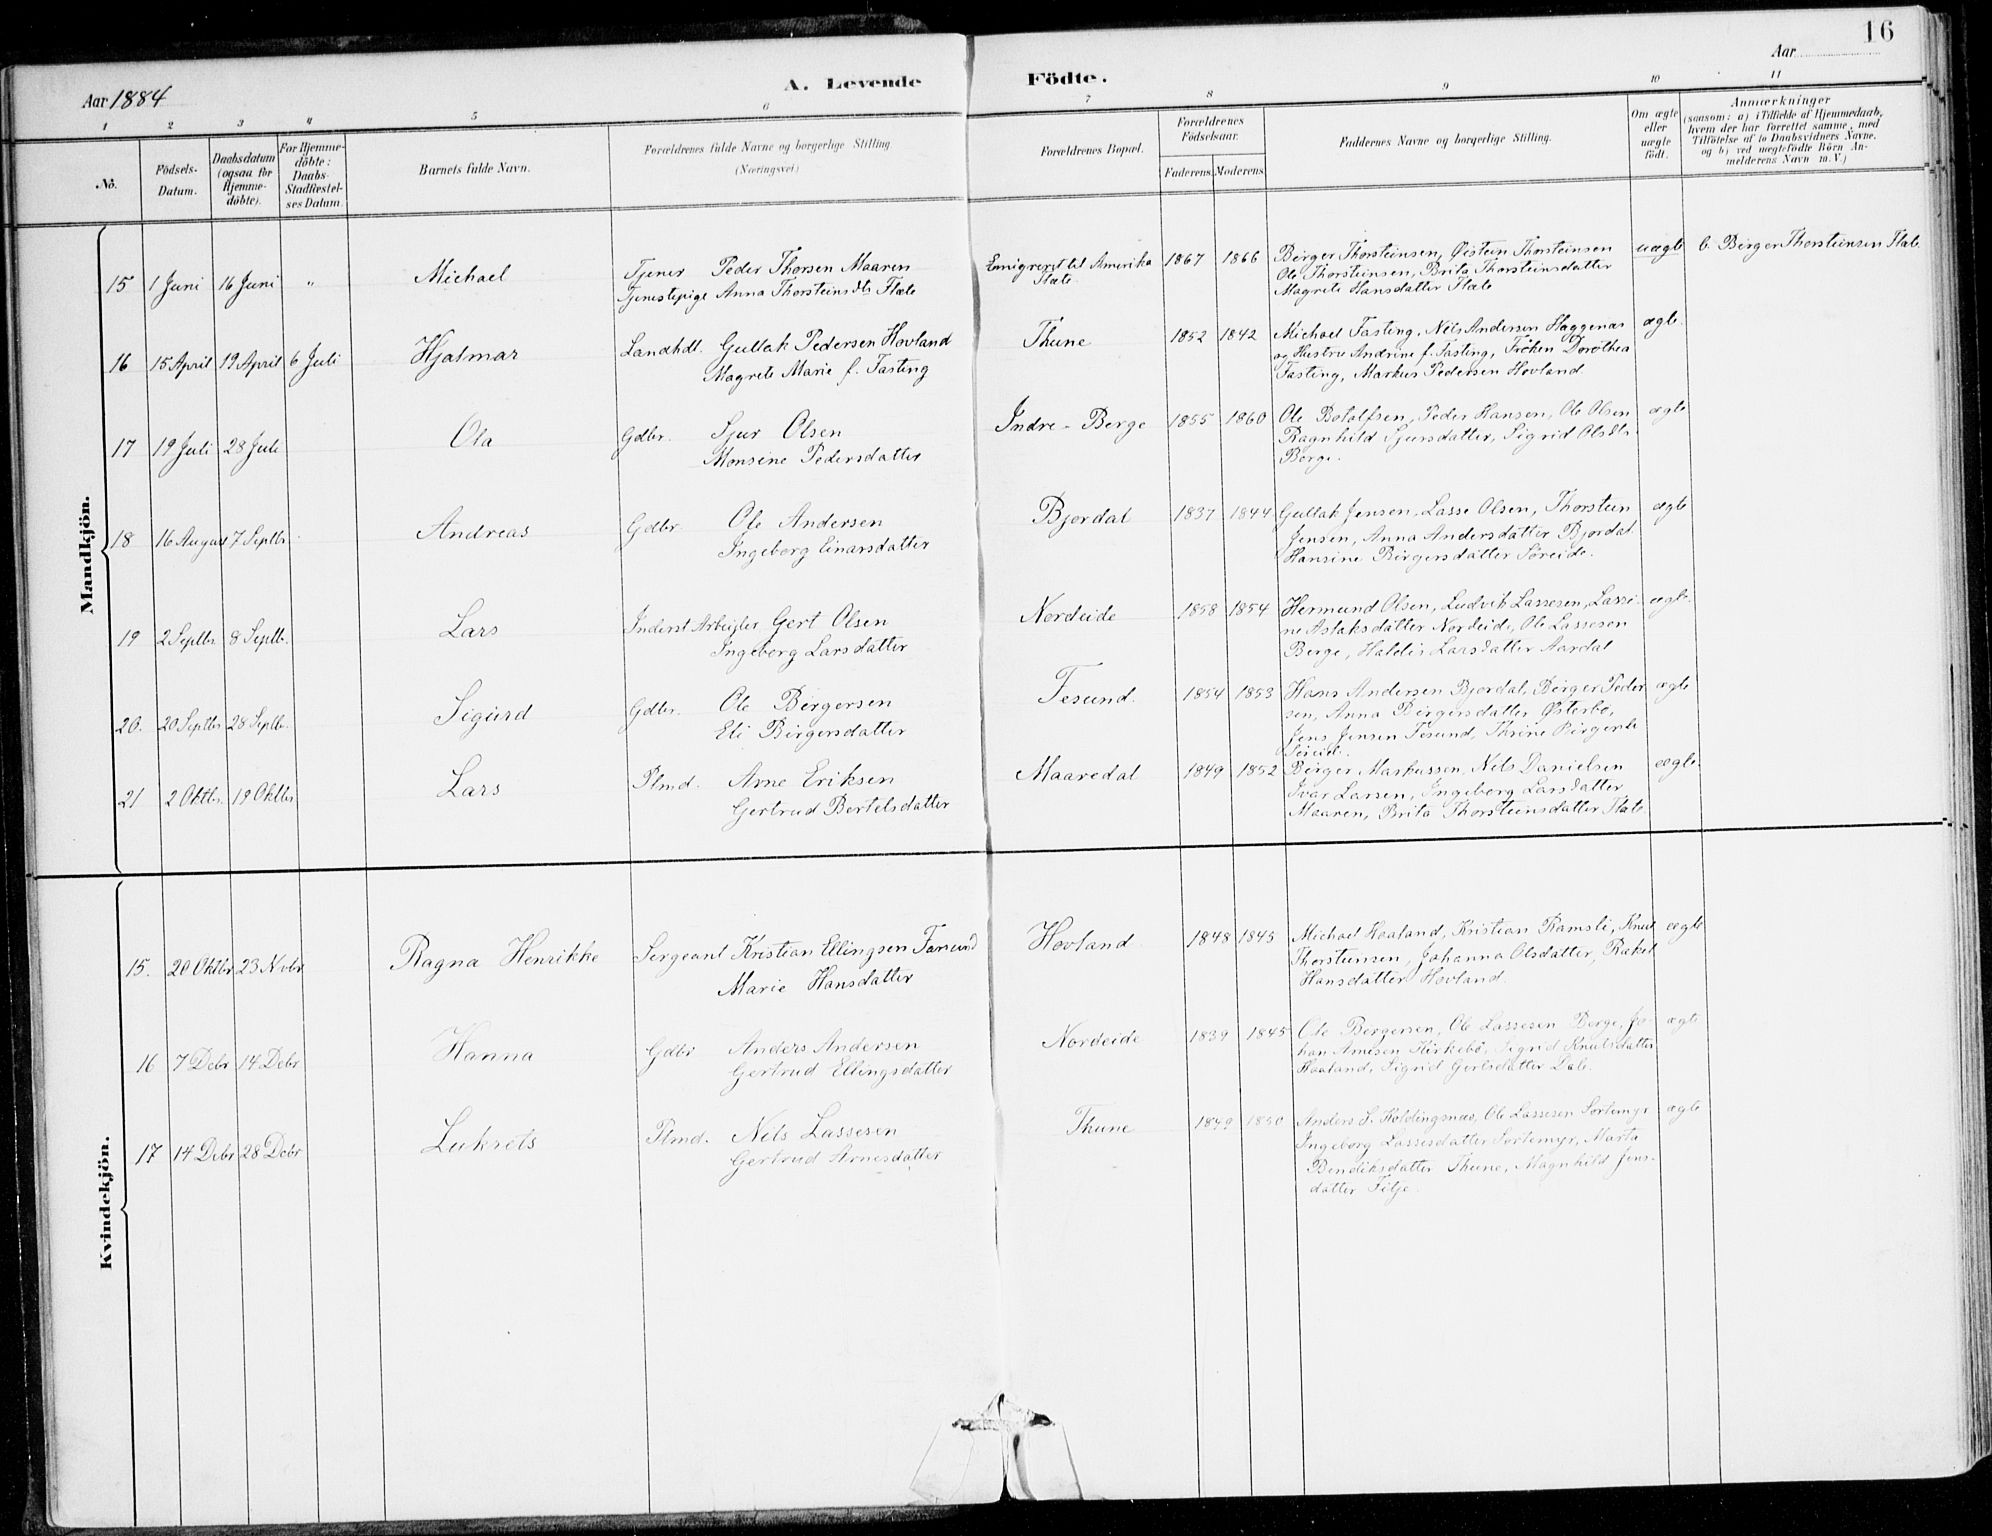 16
Aar 1884
A. Levende Födte.
Aar
1 2 3 4 5 6 7 8 9 10 11
No.
Födsels-
Datum.
Daabsdatum
(ogsaa for
Hjemme-
døbte).
For Hjemme-
døbte:
Daabs-
Stadfæstel-
ses Datum.
Barnets fulde Navn.
Forældrenes fulde Navne og borgerlige Stilling.
(Næringsvei)
Forældrenes Bopæl.
Forældrenes
Födselsaar.
Faderens. Moderens.
Faddernes Navne og borgerlige Stilling.
Om ægte
eller
uægte
født.
Anmærkninger
(saasom: a) i Tilfælde af Hjemmedaab,
hvem der har forrettet samme, med
Tilföielse af to Daabsvidners Navne.
og b) ved uægtefödte Börn An-
melderens Navn m. V.)
Mandkjön.
15 1 Juni 16 Juni " Michael
Tjener Peder Thorsen Maaren
Tjenestepige Anna Thorsteinsdtr Flæte
Emigreret til Amerika
Flæte
1867 1866
Birger Thorsteinsen, Øistein Thorsteinsen
Ole Thorsteinsen, Brita Thorsteinsdatter
Magrete Hansdatter Flæte
uægte
b. Birger Thorsteinsen Flæte
16 15 April 19 April 6 Juli Hjalmar
Landhdl. Gullak Pedersen Hovland
Magrete Marie f. Fasting
Thune
1852 1842
Michael Fasting, Nils Andersen Haggenæs
og Hustru Andrine f. Fasting, Frøken Dorothea
Fasting, Markus Pedersen Hovland
ægte
17 19 Juli 28 Juli Ola
Gdbr. Sjur Olsen
Monsine Pedersdatter
Indre-Berge
1855 1860
Ole Botolfsen, Peder Hansen, Ole Olsen
Ragnhild Sjursdatter, Sigrid Olsdtr
Berge.
ægte
18 16 August 7 Septbr. Andreas
Gdbr. Ole Andersen
Ingeborg Einarsdatter
Bjordal
1837 1844
Gullak Jensen, Lasse Olsen, Thorstein
Jensen, Anna Andersdatter Bjordal
Hansine Birgersdatter Søreide.
ægte
19 2 Septbr. 8 Septb. Lars
Inderst Arbeider Gert Olsen
Ingeborg Larsdatter
Nordeide
1858 1854
Hermund Olsen, Ludvik Lassesen, Lassi-
ne Aslaksdatter Nordeide, Ole Lassesen
Berge, Haldis Larsdatter Aardal
ægte
20. 20 Septbr 28 Septb. Sigurd
Gdbr. Ole Birgersen
Eli Birgersdatter
Tesund.
1854 1853
Hans Andersen Bjordal, Birger Peder
sen, Anna Birgersdatter Østerbø,
Jens Jensen Tesund, Thrine Birgersdtr
Søreid.
ægte
21 2 Oktbr. 19 Oktbr Lars
Plmd. Arne Eriksen
Gertrud Bertelsdatter
Maaredal
1849 1852
Birger Markussen, Nils Danielsen
Ivar Larsen, Ingeborg Larsdatter
Maaren, Brita Thorsteinsdatter Flæte
ægte
Kvindekjön.
15. 20 Oktbr 23 Nvbr Ragna Henrikke
Sergeant Kristian Ellingsen Farsund
Marie Hansdatter
Hovland
1848 1845
Michael Haaland, Kristian Ramsli, Knut
Thorsteinsen, Johanna Olsdatter, Rakel
Hansdatter Hovland.
ægte
16 7 Debr 14 Debr Hanna
Gdbr Anders Andersen
Gertrud Ellingsdatter
Nordeide
1839 1845
Ole Bergersen, Ole Lassesen Berge, Jo-
han Arnesen Kirkebø, Sigrid Knutsdatter
Haaland, Sigrid Gertsdatter Dale.
ægte
17 14 Debr 28 Debr Lukrets
Plmd. Nils Lassesen
Gertrud Arnesdatter
Thune
1849 1850
Anders S. Koldingsnæs, Ole Lassesen Sortemyr
Ingeborg Lassesdatter Sortemyr, Marta
Bendiksdatter Thune, Magnhild Jens-
datter Fitje.
ægte